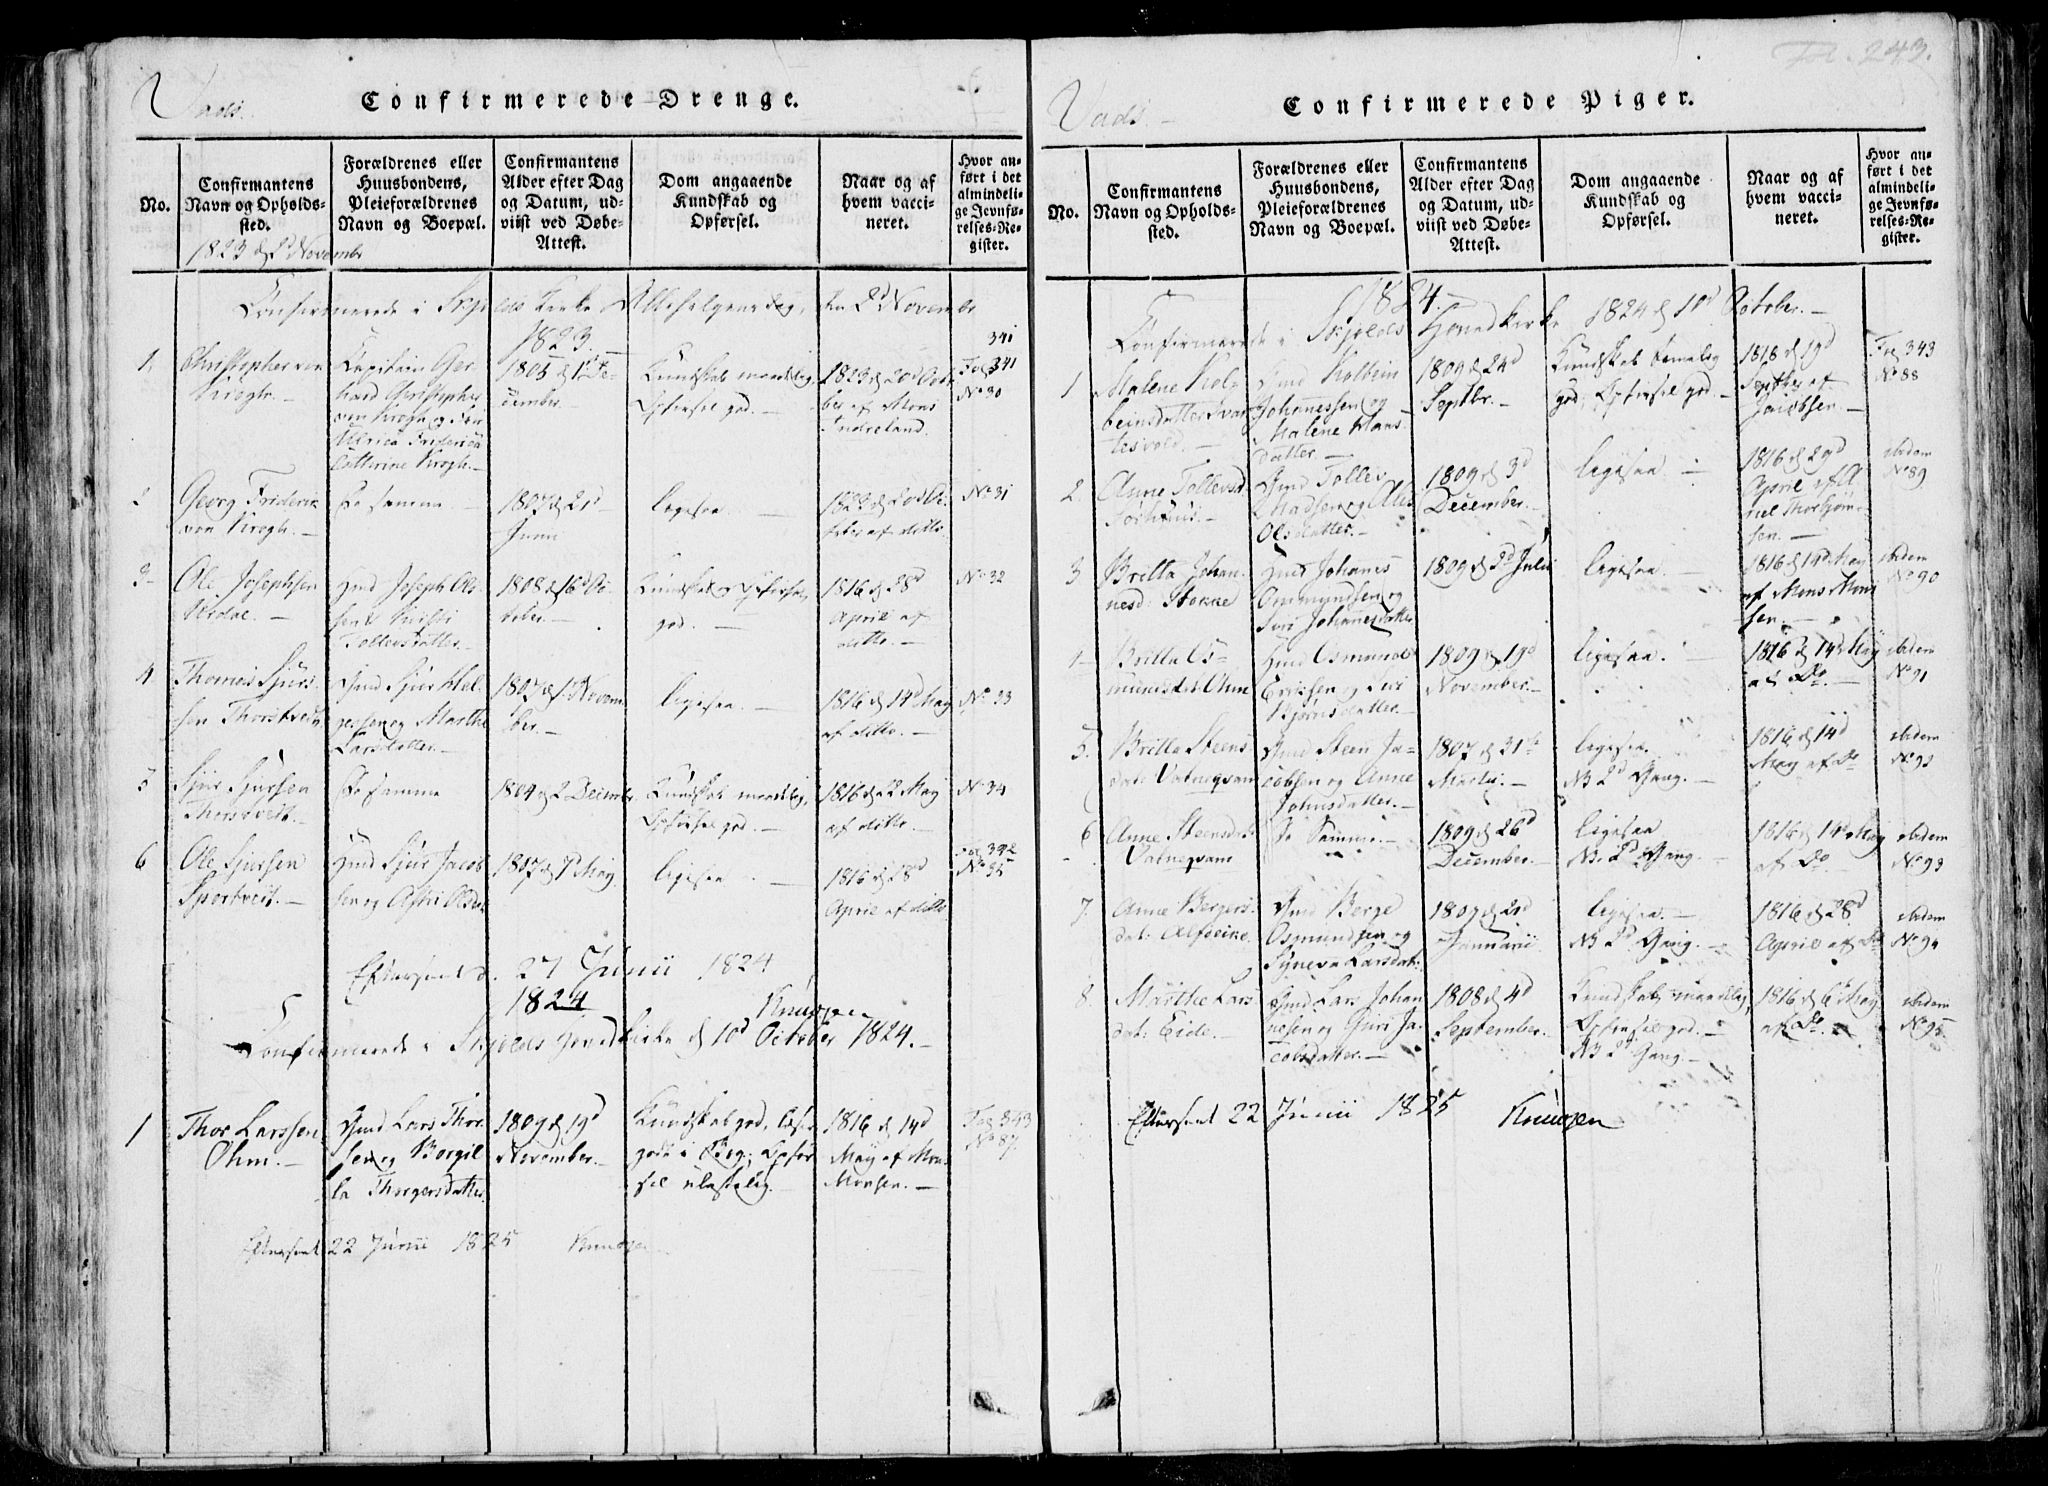 Vads.
Confirmerede Drenge.
No.
Confirmantens Navn og Opholds-sted.
Forældrenes eller Huusbondens, Pleieforældrenes Navn og Boepæl.
Confirmantens Alder efter Dag og Datum, ud-viist ved Døbe-Attest.
Dom angaaende Kundskab og Opførsel.
Naar og af hvem vacci-neret.
Hvor an-ført i det almindeli-ge Jevnfø-relses-Re-gister.
1823 d 2d Novembr
Confirmerede i Skjolds Kirke Allehelgens Dag, den 2d Novembr
1823.
341
1. Christopher von Krogh. Kapitain Ger-hard Christopher von Krogh og Fru Ulrica Friderica Cathrine Krogh. 1805 d 1ste De-cember. Kundskab maadelig, Opførsel god. 1823 d 20d Octo-ber af Mons Indreland. Fog 341 No 30
2 Georg Friderich von Krogh. De samme. 1807 d 21d Junii ligesaa. 1823 d 20d Oc-tober af ditto. No 31
3 Ole Josephsen 1808 d 16d Oc-tober. Kundskab og Opførsel god. 1816 d 28d April af ditto. No 32
Gmd Joseph Ol-sen & Kirsti Tollevsdatter.
4. Thomas Sjurs-sen Thorstveit Gmd Sjur Hel-gesen og Marthe Larsdatter. 1807 d 1 Novem-ber. ligesaa. 1816 d 14d May af ditto. No 33
5 Sjur Sjursen Thorstveit. De samme 1809 d 2 Decembr. Kundskab maadelig, Opførsel god. 1816 d 22 May af ditto. No 34
6 Ole Sjursen Gmd Sjur Jacob-sen og Astri Olsdr 1807 d 7d May ligesaa. 1816 d 28d April af ditto Fog 342 No 35
Efterseet d. 27 Junii 1824
Knudzen
1824
Confirmerede i Skjolds Hovedkirke d 10d October 1824.
1 Thor Larssen Ohm. Gmd Lars Thor-sen og Borgil-la Thorgersdatter. 1809 d 19d November. Kundskab god, læser godt i Bog, Opfør-sel ulastelig. 1816 d 14d May af Mons Monsen. Fog 343 No 87.
Efterseet 22 Junii 1825 Knudzen
Fol. 243.
Vads.
Confirmerede Piger.
No.
Confirmantens Navn og Opholds-sted.
Forældrenes eller Huusbondens, Pleieforældrenes Navn og Boepæl.
Confirmantens Alder efter Dag og Datum, ud-viist ved Døbe-Attest.
Dom angaaende Kundskab og Opførsel.
Naar og af hvem vacci-neret.
Hvor an-ført i det almindeli-ge Jevnfø-relses-Re-gister.
1824.
Confirmerede i Skjolds Hovedkirke 1824 d 10d October.
1 Malene Kol-beinsdatter Svar-tesvold. Gmd Kolbein Johannessen og Malene Hans-datter. 1809 d 24d Septbr. Kundskab temelig god, Opførsel god. 1818 d 19d Septber af Jacobsen. Fog 343 No 88
2. Anne Tollevsd. Gmd Tollev Madsen og Olsdatter. 1809 d 3d December. ligesaa. 1816 d 29d April af Thorbjørn-sen. ibidem No 89
3 Britta Johan-nesd. Stokke Gmd Johanes Ommundsen og Siri Johannesdatter 1809 d 2d Julii ligesaa. 1816 d 14d May af Mons Mon-sen. ibidem No 90
4 Britta Os-mundsdat. Ohm Gmd Osmund Ericksen og Siri Bjørnsdatter. 1809 d 19d November. ligesaa. 1816 d 14d May af Do. ibidem No 91
5. Britta Steens-dat. Vatneqvam Gmd Steen Ja-cobsen og Anne Johnsdatter. 1807 d 31te Marty. ligesaa. NB 2d Gang. 1816 d 14d May af Do ibidem No 92
6 Anne Steensd. Vatneqvam De Samme. 1809 d 26d December. ligesaa NB. 2d Gang. 1816 d 14d May af Do. ibidem No 93
7. Anne Bergers-dat. Ølfveike. Gmd Berge Osmundsen og Syneva Larsdat. 1809 d 20d Januarii ligesaa. NB 2d Gang. 1816 d 28d April af Do ibidem No 94
8. Marthe Lars-dat. Eide. Gmd Lars Johan-nesen og Guri Ja-cobsdatter. 1808 d 4d September. Kundskab maadelig, Opførsel god. NB 2d Gang. 1816 d 6 May af Do. ibidem No 95
Efterseet 22 Junii 1825 Knudzen